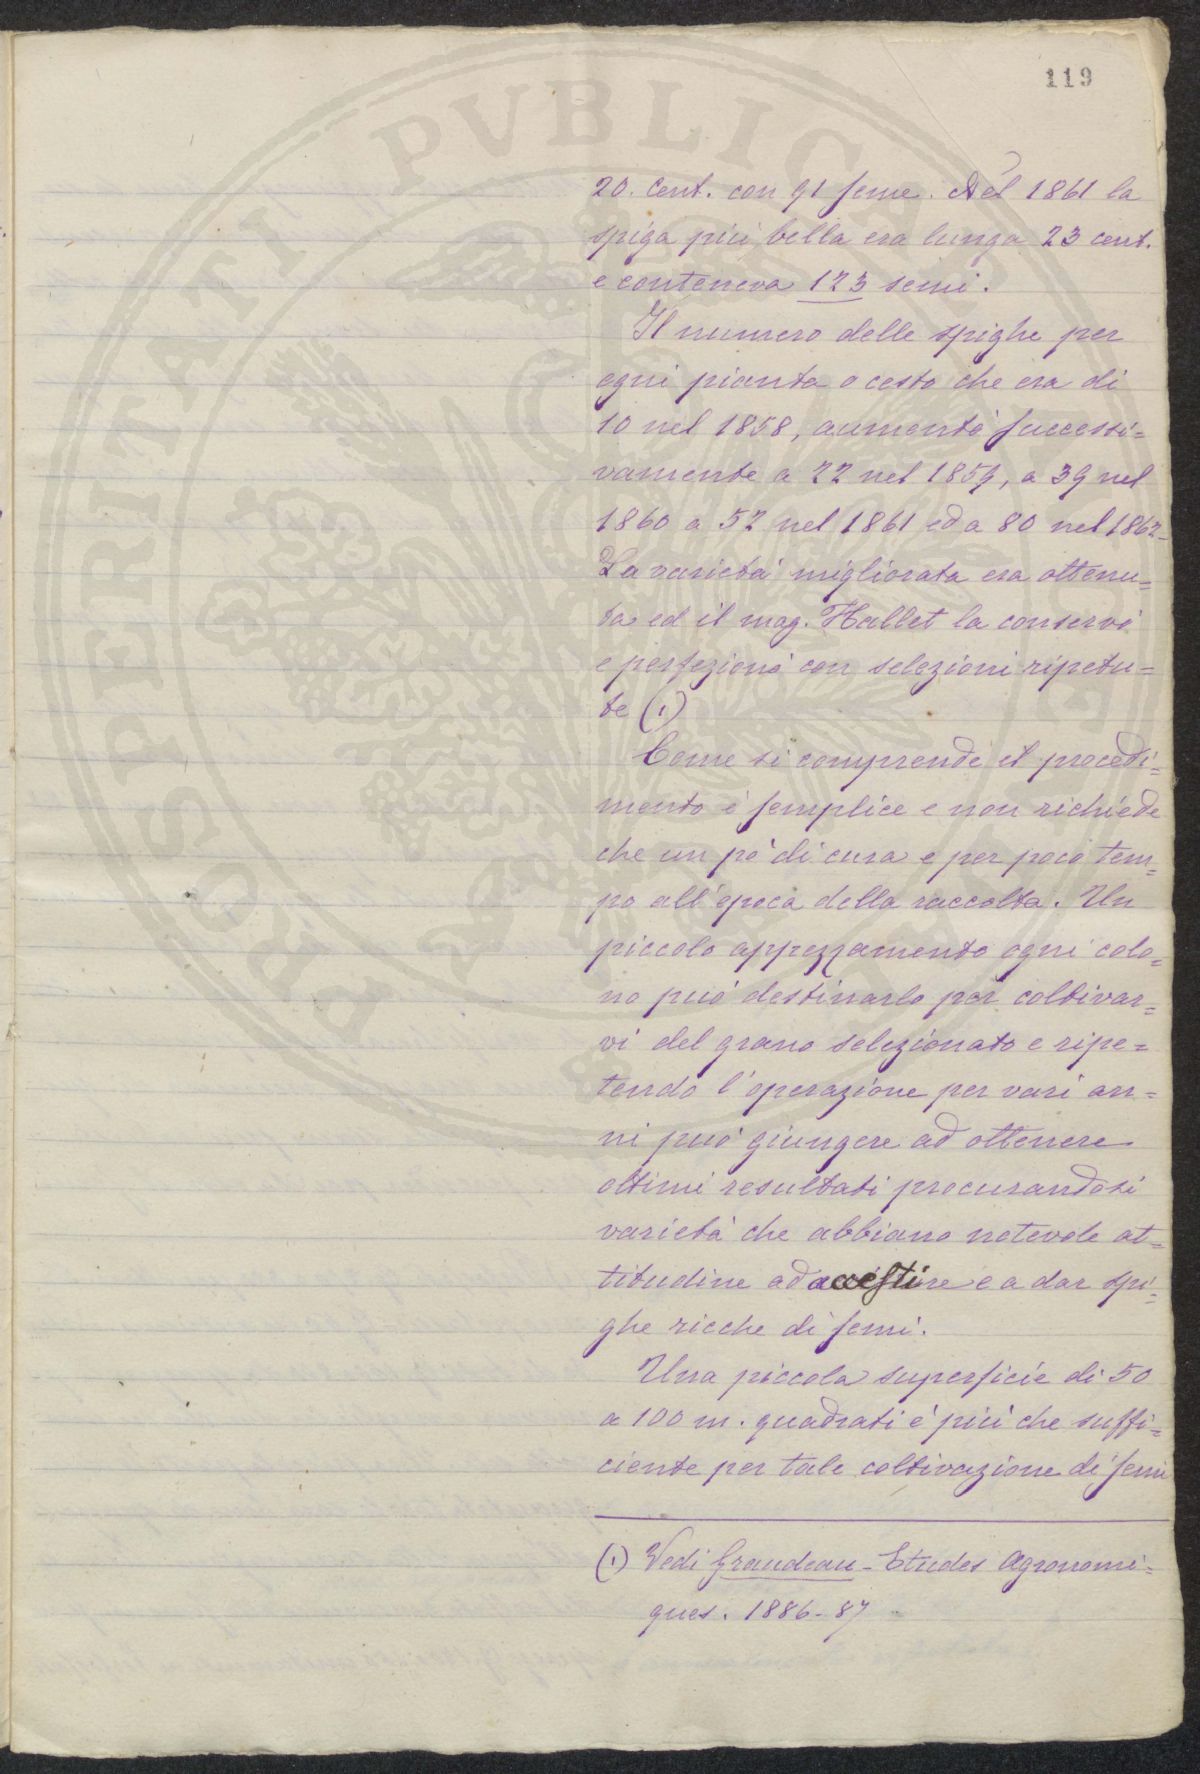 119
20. Cent. con 91 seme. Nel 1861 la
spiga più bella era lunga 23 cent.
e conteneva 123 semi.
Il numero delle spighe per
ogni pianta o cesto che era di
10 nel 1858, aumentò successi=
vamente a 22 nel 1859, a 39 nel
1860 a 52 nel 1861 ed a 80 nel 1862-
La varietà migliorata era ottenu=
ta ed il mag. Hallet la conservò
e perfezionò con selezioni ripetu=
te (1)
Come si comprende il procedi=
mento è semplice e non richiede
che un pò di cura e per poco tem=
po all'epoca della raccolta. Un
piccolo appezzamento ogni colo=
no può destinarlo per coltivar=
vi del grano selezionato e ripe=
tendo l'operazione per vari an=
ni può giungere ad ottenere
ottimi resultati procurandosi
varietà che abbiano notevole at=
titudine ad accestire e a dar spi=
ghe ricche di semi.
Una piccola superficie di 50
a 100 m. quadrati è più che suffi=
ciente per tale coltivazione di semi
(1) Vedi Grandeau - Etudes Agronomi=
ques. 1886-87
PROSPERITATI PVBLICAE